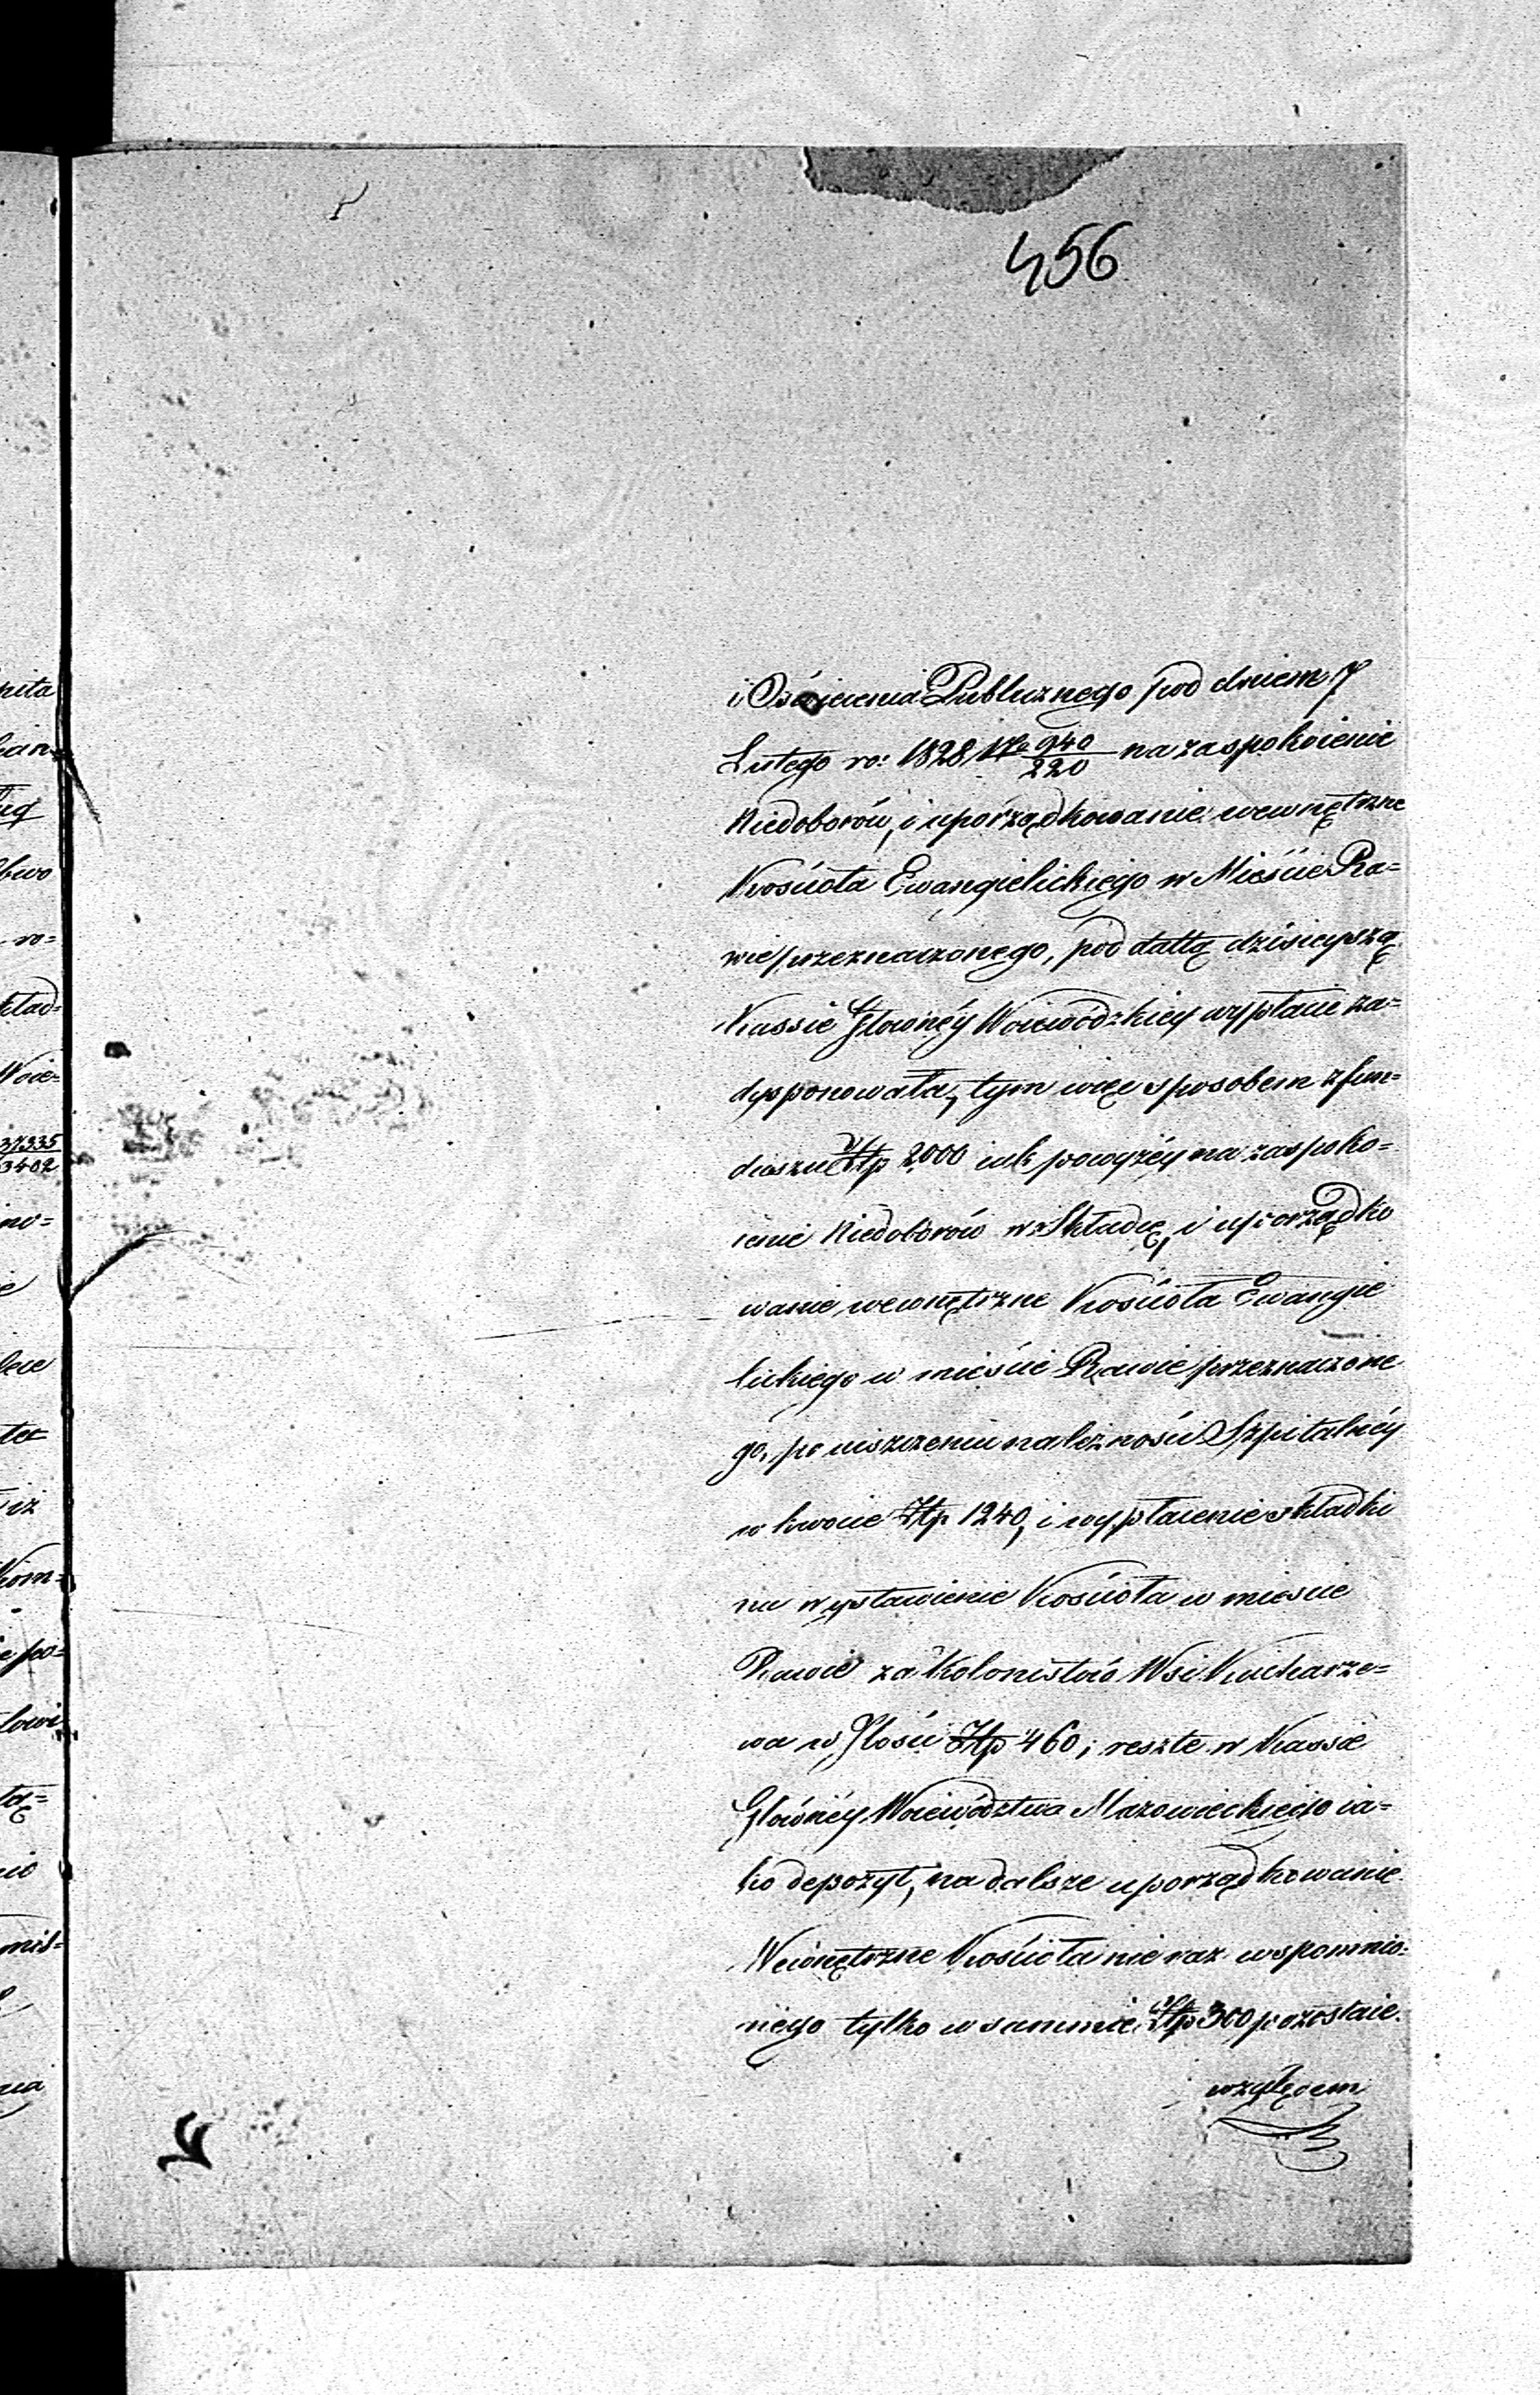 456
i Oświecenia Publicznego pod dniem 7
Lutego ro: 1828 No 940/220 na zaspokoienie
Niedoborów, i uporządkowanie wewnętrzne
Kościoła Ewangielickiego w Mieście Ra=
wie przeznaczonego, pod dattą dzisieyszą
Kassie Głownéy Woiewodzkiey wypłacić za=
dysponowała, tym więc sposobem z fun=
duszu Złtp 2000 iak powyżéy na zaspoko=
ienie Niedoborów w Składce, i uporządko
wanie wewnętrzne Kościoła Ewangie
lickiego w mieście Rawie przeznaczone
go, po uiszczeniu należności Szpitalnéy
w kwocie Złp 1240, i wypłacenie składki
na wystawienie Kościoła w mieście
Rawie za Kolonistów Wsi Kucharze=
wa w Ilości Złtp 460; resztę w Kassie
Głównéy Woiewództwa Mazowieckiego ia=
ko depozyt, na dalsze uporządkowanie
Wewnętrzne Kościoła nie raz wspomnio=
nego tylko w summie Złtp 300 pozostaie.
względem
pita
ro=
kład=
Woie=
37335
3402
no=
iż
Kom=
po=